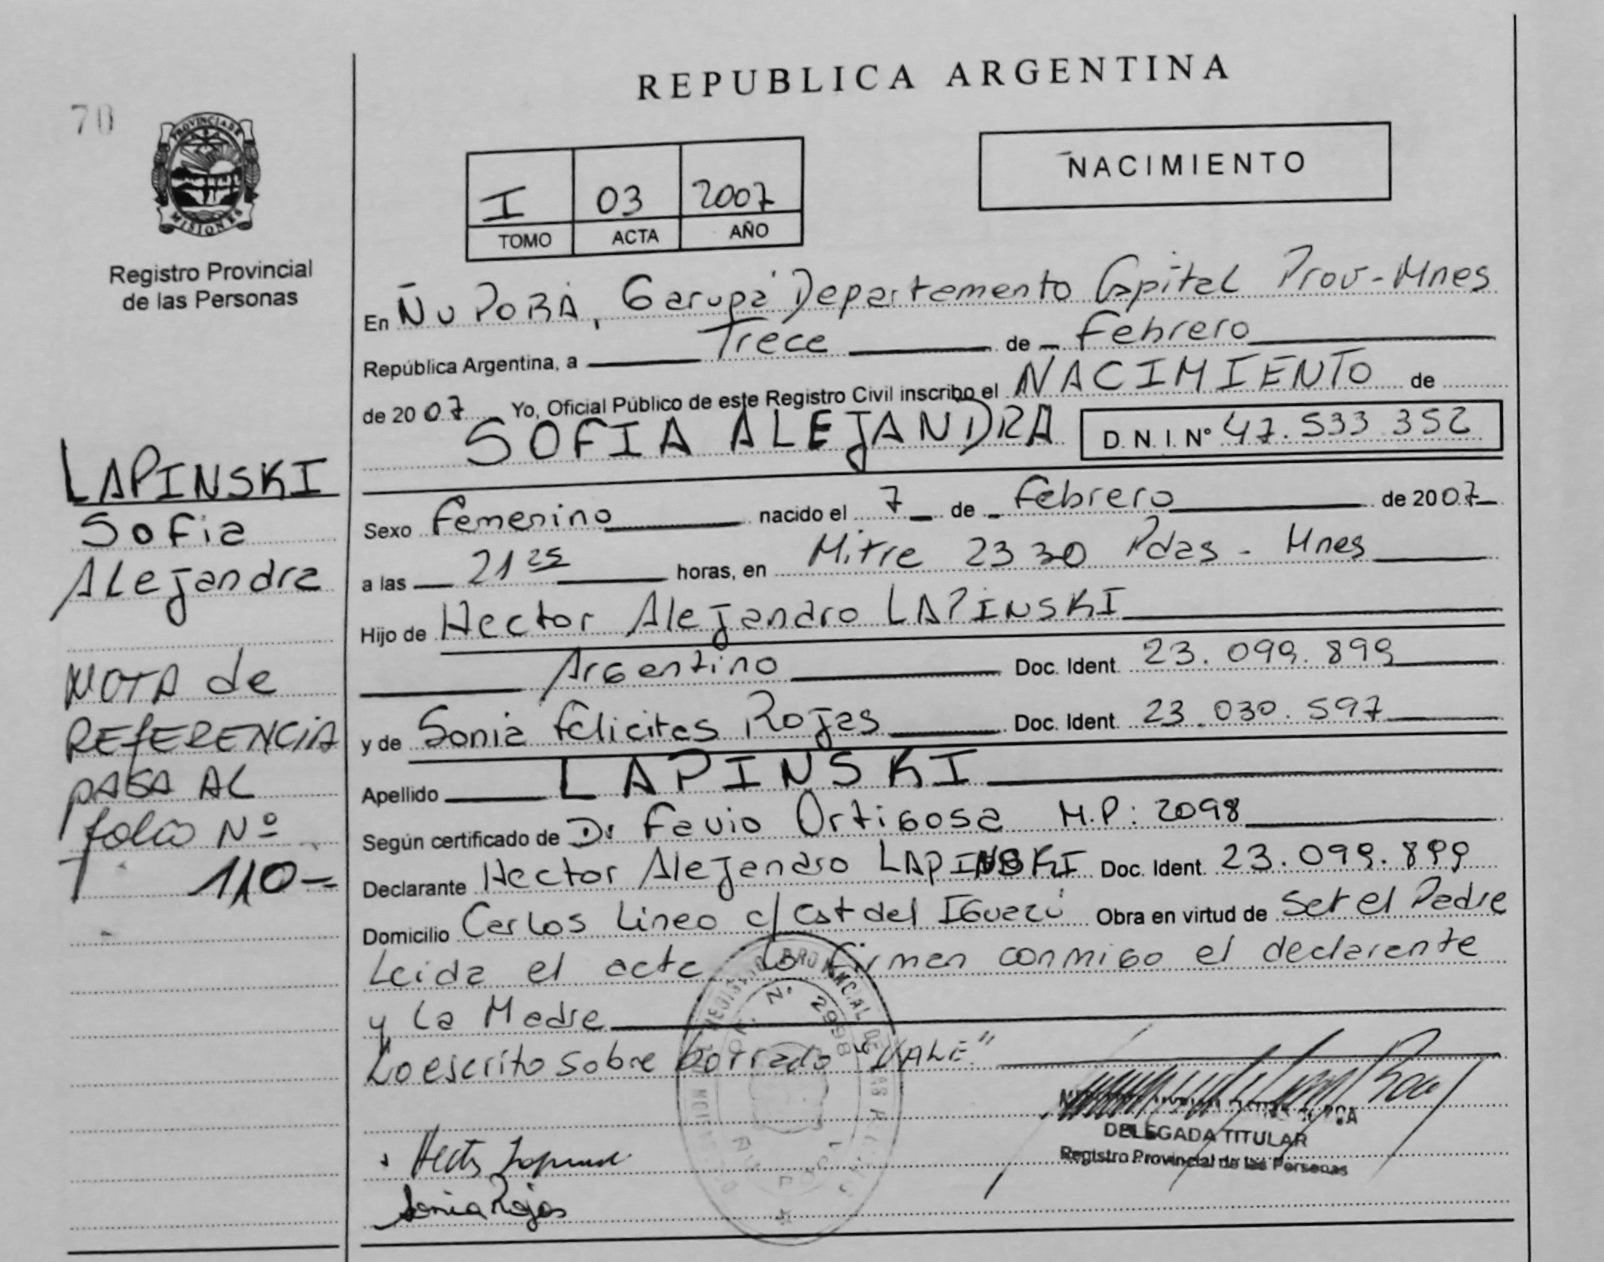 REPUBLICA ARGENTINA
70
PROVINCIA DE
MISIONES
Registro Provincial
de las Personas
I 03 2007
TOMO ACTA AÑO
NACIMIENTO
En ÑU PORÁ, Garupá Departamento Capital Prov-Mnes
República Argentina, a Trece de Febrero
de 2007 Yo, Oficial Público de este Registro Civil inscribo el NACIMIENTO de
SOFIA ALEJANDRA D. N. I. Nº 47.533 352
Sexo Femenino nacido el 7 de Febrero de 2007
a las 21 25 horas, en Mitre 2330 Pdas - Mnes
Hijo de Hector Alejandro LAPINSKI
Argentino Doc. Ident. 23.099.899
y de Sonia Felicitas Rojas Doc. Ident. 23.030.597
Apellido LAPINSKI
Según certificado de Dr Favio Ortigosa M.P: 2098
Declarante Hector Alejandro LAPINSKI Doc. Ident. 23.099.899
Domicilio Carlos Lineo c/ Cat del Iguazú Obra en virtud de Ser el Padre
Leida el acta lo firman conmigo el declarante
y La Madre
Lo escrito sobre borrado "VALE"
LAPINSKI
Sofia
Alejandra
NOTA de
REFERENCIA
PASA AL
folio Nº
110-
REGISTRO PROVINCIAL DE LAS PERSONAS
Nº 2998
DELEGADA TITULAR
Registro Provincial de las Personas
Sonia Rojas